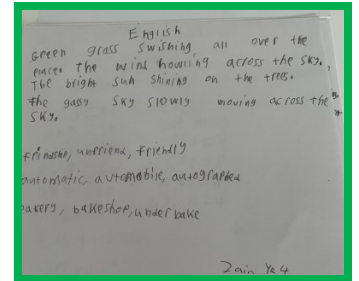 English
Green grass swishing all over the
place. The wind howling across the sky.,
The bright sun shining on the trees.
The gassy sky slowly moving across the
sky.
frindship, unfriend, Friendly
automatic, automobile, autographed
bakery, bakeshop, underbake
Zain Yr 4